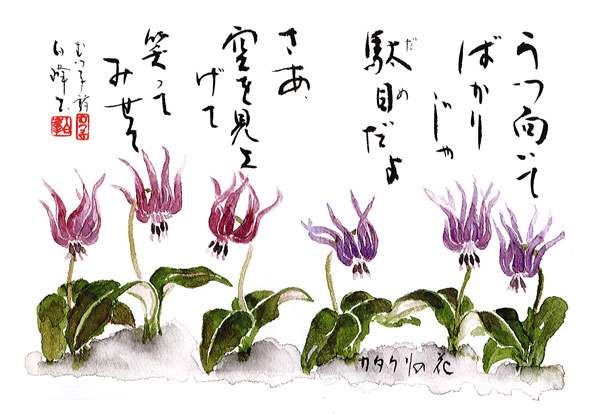 うつ向いて
ばかり
じゃ
駄目だよ
だめ
さあ、
空を見上
げて
笑って
みせて
カタクリの花